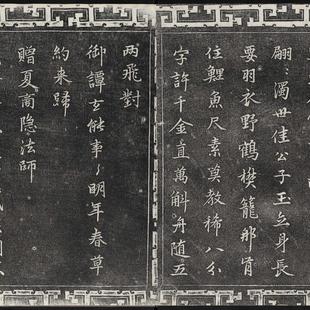 翩〻濁世佳公子玉立身長
要羽衣野鶴樊籠那肯
住鯉魚尺素莫教稀八分
字許千金直萬斛舟隨五
兩飛對
御譚玄能事〻明年春草
約来歸
贈夏商隐法師